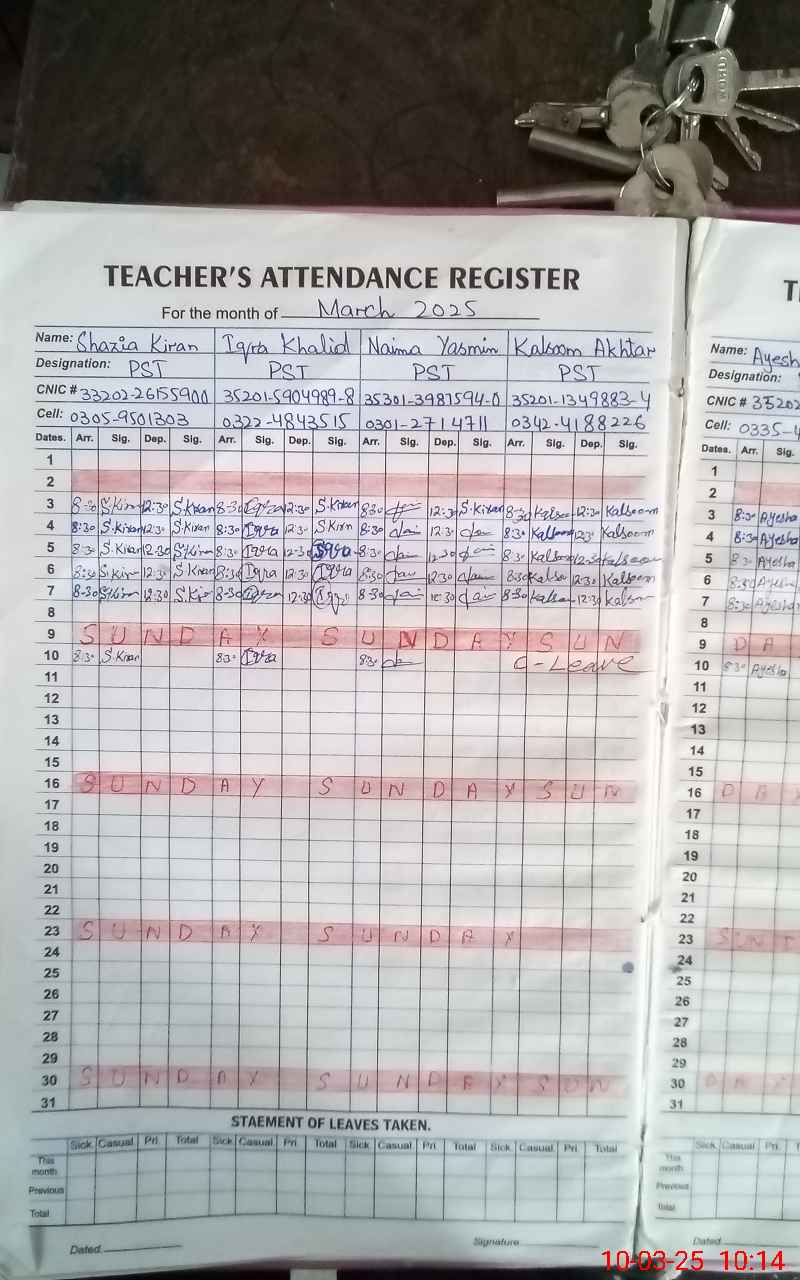 TEACHER'S ATTENDANCE REGISTER
For the month of March 2025
Name: Shazia Kiran Iqra Khalid Naima Yasmin Kalsoom Akhtar
Designation: PST PST PST PST
CNIC # 33202-26155900 35201-5904989-8 35301-3987594-0 35201-1349883-4
Cell: 0305-9501303 0322-4843515 0301-2714711 0342-4188226
Dates. Arr. Sig. Dep. Sig. Arr. Sig. Dep. Sig. Arr. Sig. Dep. Sig. Arr. Sig. Dep. Sig.
1
2
3 8:30 S.Kiran 12:30 S.Kiran 8:30 Iqra 12:30 S.Kiran 8:30 12:30 S.Kiran 8:30 Kalsoom 12:30 Kalsoom
4 8:30 S.Kiran 12:30 S.Kiran 8:30 Iqra 12:30 S.Kirn 8:30 12:30 8:30 Kalsoom 12:30 Kalsoom
5 8:30 S.Kiran 12:30 S.Kiran 8:30 Iqra 12:30 Iqra 8:30 12:30 8:30 Kalsoom 12:30 Kalsoom
6 8:30 S.Kiran 12:30 S.Kiran 8:30 Iqra 12:30 Iqra 8:30 12:30 8:30 Kalso 12:30 Kalsoom
7 8:30 S.Kiran 12:30 S.Kir 8:30 Iqra 12:30 Iqra 8:30 12:30 8:30 Kalsom 12:30 Kalsom
8
9 S U N D A Y S U N D A Y S U N
10 8:30 S.Kiran 8:30 Iqra 8:30 C-Leave
11
12
13
14
15
16 S U N D A Y S U N D A Y S U N
17
18
19
20
21
22
23 S U N D A Y S U N D A Y
24
25
26
27
28
29
30 S U N D A Y S U N D A Y S U N
31
STAEMENT OF LEAVES TAKEN.
Sick. Casual. Pri. Total Sick. Casual. Pri. Total Sick. Casual. Pri. Total Sick. Casual. Pri. Total
This month
Previous
Total
Dated. Signature
T
Name: Ayesh
Designation:
CNIC # 35202
Cell: 0335-4
Dates. Arr. Sig.
1
2
3 8:30 Ayesha
4 8:30 Ayesha
5 8:30 Ayesha
6 8:30 Ayesha
7 8:30 Ayesha
8
9 D A
10 8:30 Ayesha
11
12
13
14
15
16 D A Y
17
18
19
20
21
22
23 S U N D
24
25
26
27
28
29
30 D A Y
31
Sick. Casual. Pri.
This month
Previous
Total
Dated
10-03-25 10:14